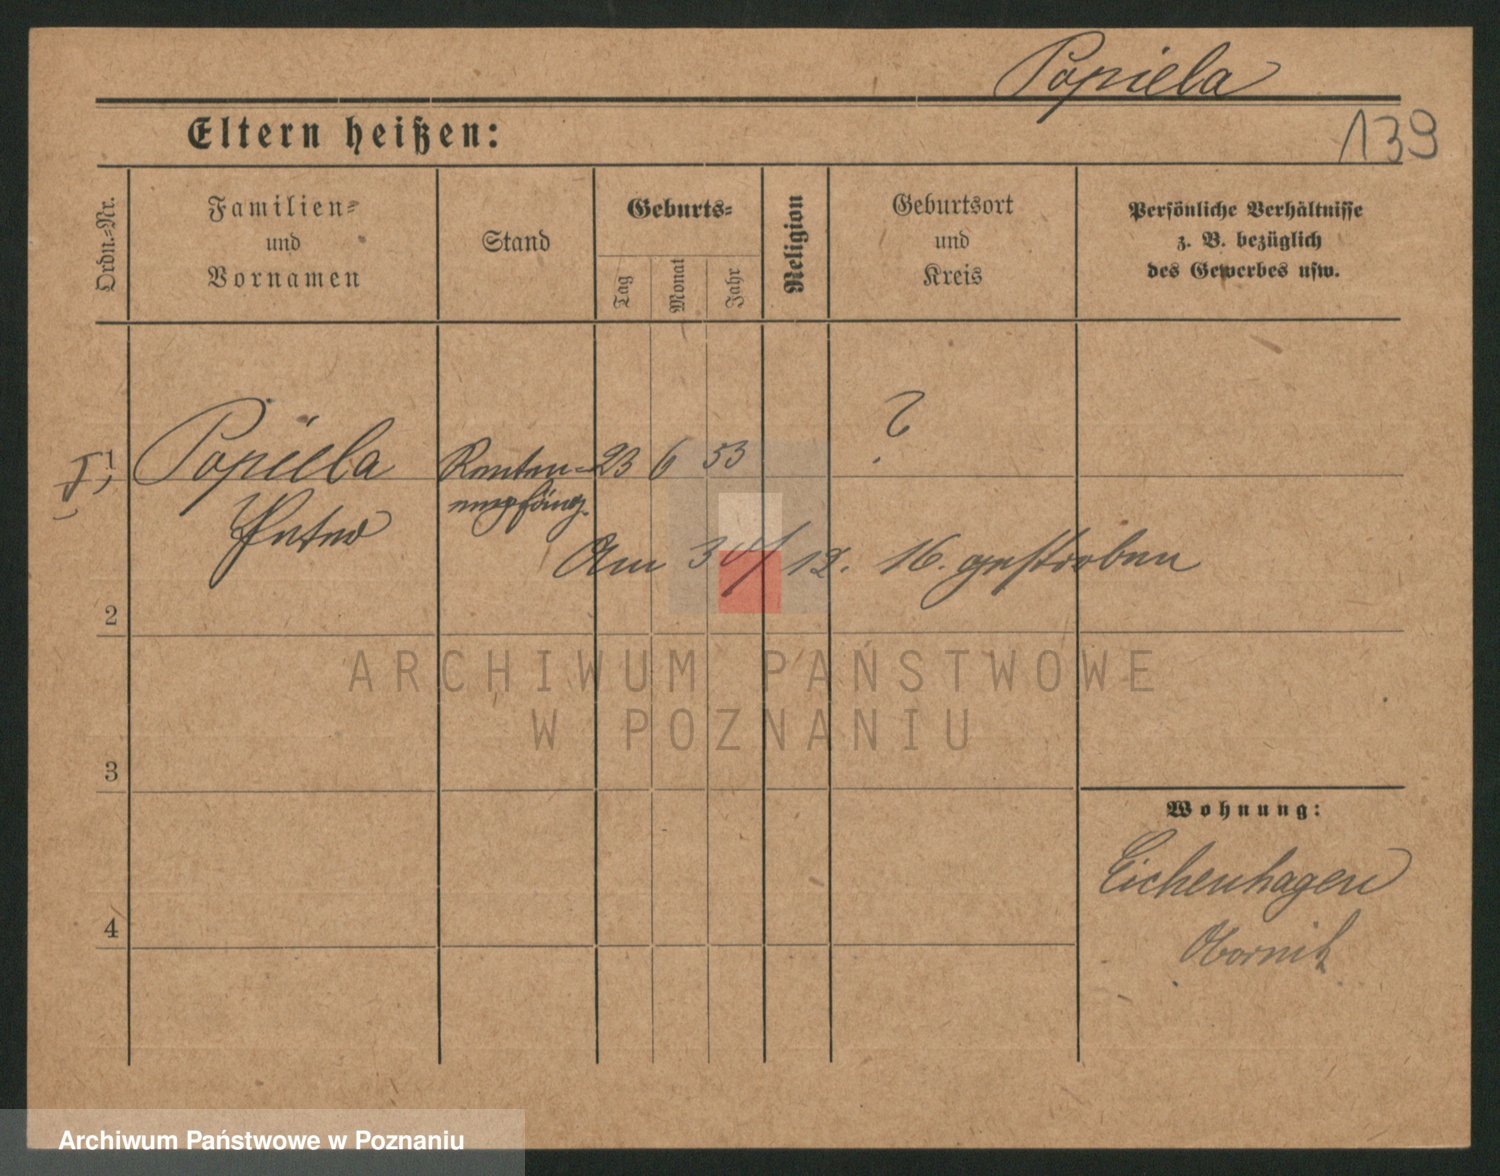 Popiela
139
Eltern heißen:
Ordn.-Nr.
Familien-
und
Vornamen
Stand
Geburts-
Tag
Monat
Jahr
Religion
Geburtsort
und
Kreis
Persönliche Verhältnisse
z. B. bezüglich
des Gewerbes usw.
1
Popiela
Peter
Renten-
empfäng.
23 6 53
?
Am 30/12. 16. gestorben
2
3
4
Wohnung:
Eichenhagen
Obornik
ARCHIWUM PAŃSTWOWE
W POZNANIU
Archiwum Państwowe w Poznaniu